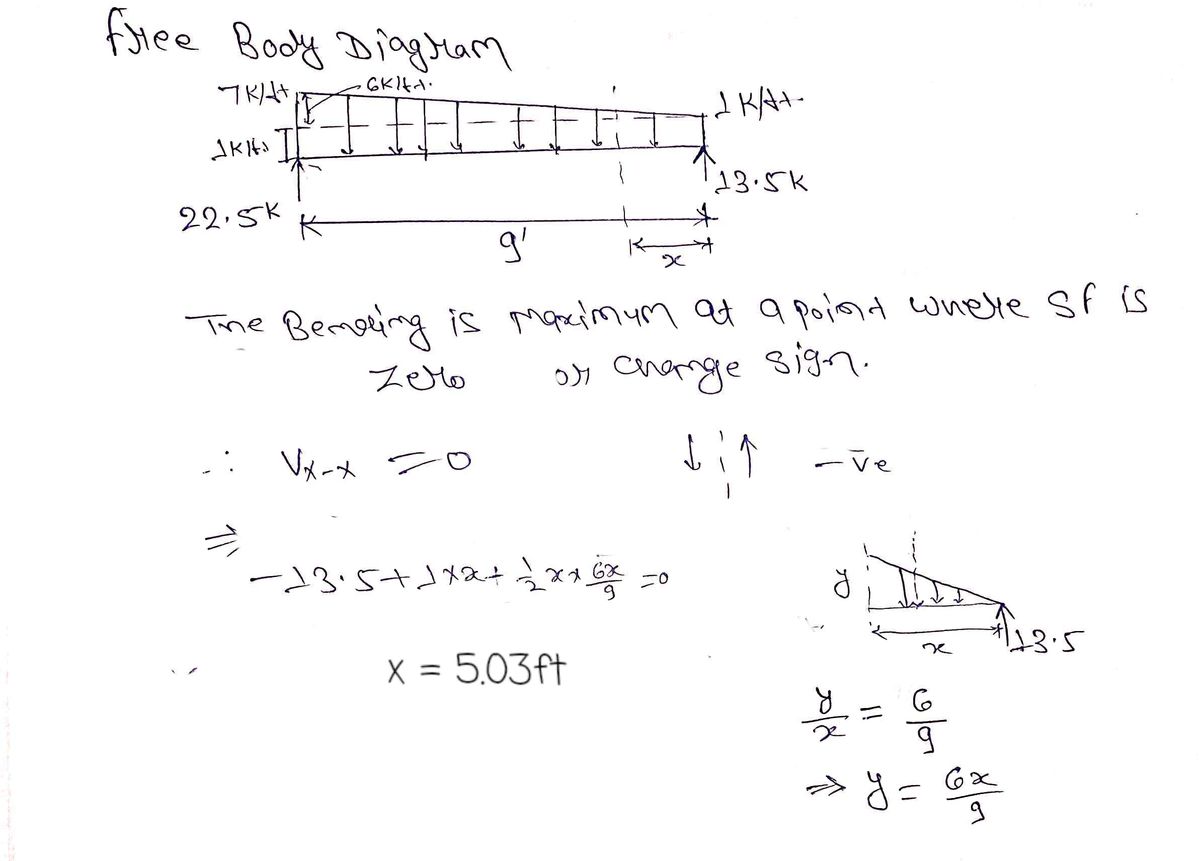 Free Body Diagram
7K/ft
6K/ft.
1K/ft.
1K/ft.
13.5K
22.5K
9'
x
The Bending is maximum at a point where SF is
zero or change sign.
∴ Vx-x = 0
↓ ¦ ↑ -ve
⇒
-13.5 + 1×x + 1/2 x × 6x/9 = 0
y
x
13.5
x = 5.03ft
y/x = 6/9
⇒ y = 6x/9